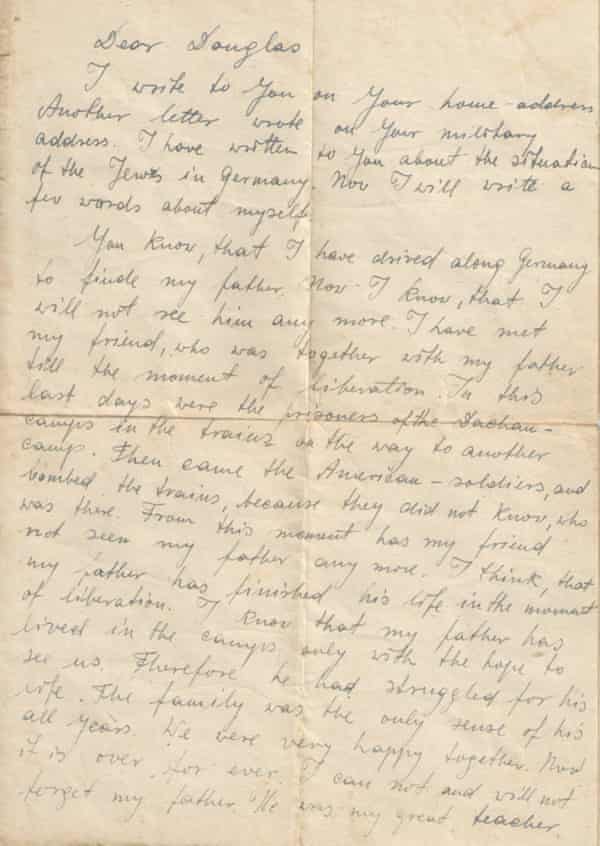 Dear Douglas
I write to You on Your home-address
Another letter wrote on Your military
address. I have written to You about the situation
of the Jews in Germany. Now I will write a
few words about myself.
You know, that I have drived along Germany
to finde my father. Now I know, that I
will not see him any more. I have met
my friend, who was together with my father
till the moment of liberation. In this
last days were the prisoners of the Dachau-
camps in the trains on the way to another
camp. Then came the American-soldiers, and
bombed the trains, because they did not know, who
was there. From this moment has my friend
not seen my father any more. I think, that
my father has finished his life in the momant
of liberation. I know that my father has
lived in the camps only with the hope to
see us. Therefore he had struggled for his
life. The family was the only sense of his
all years. We were very happy together. Now
it is over for ever. I can not and will not
forget my father. He was my great teacher.